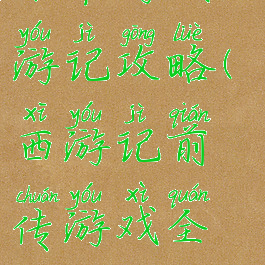 yóu jì gōng lüè
游记攻略(
xī yóu jì qián
西游记前
chuán yóu xì quán
传游戏全